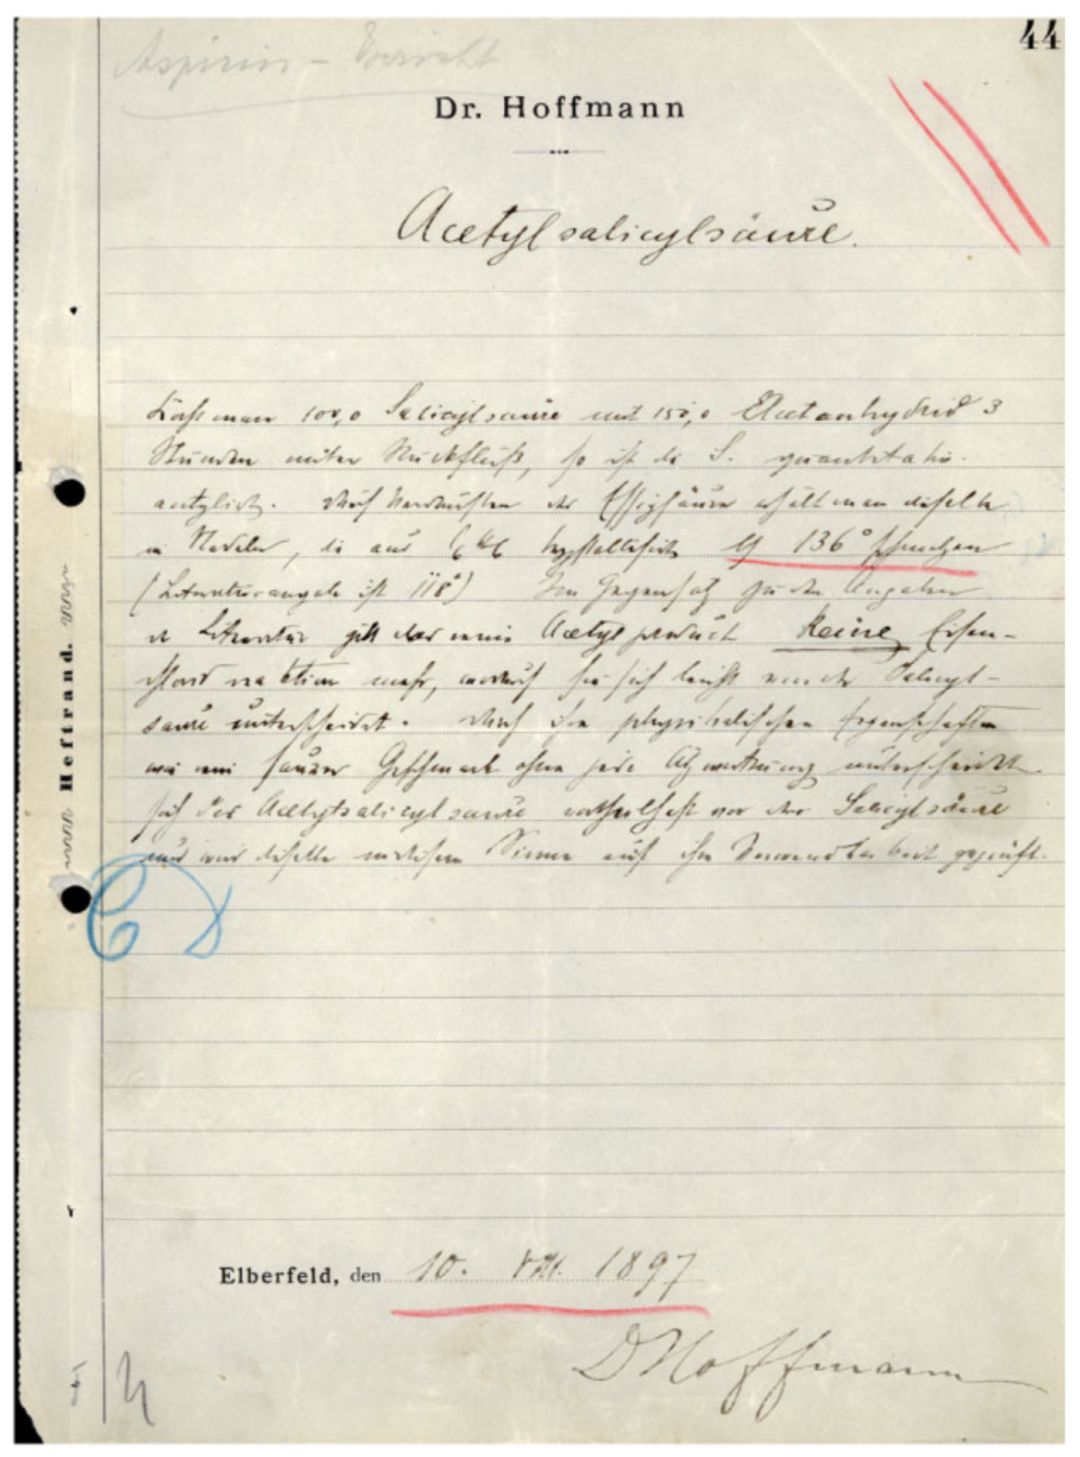 44
Aspirin – Bericht
Dr. Hoffmann
Acetylsalicylsäure.
man 100,0 Salicylsäure mit 150,0 Acetanhydrid 3
Stunden unter Rückfluß, so ist die S. quantitativ
Durch Verdunsten der Essigsäure erhält man dieselbe
in Nadeln, die aus krystallisirt 136°
(Literaturangabe ist 118°) Im Gegensatz zu den Angaben
der Literatur reine Acetylproduct keine Eisen-
chloridreaction mehr, wodurch sie sich leicht von der Salicyl-
säure unterscheidet. Durch ihre physikalischen Eigenschaften
wie ein saurer Geschmack ohne jede Ätzwirkung unterscheidet
sich die Acetylsalicylsäure vortheilhaft von der Salicylsäure
und wird dieselbe in diesem Sinne auf ihre Verwendbarkeit geprüft.
Elberfeld, den 10. VIII. 1897
Hoffmann
Heftrand.